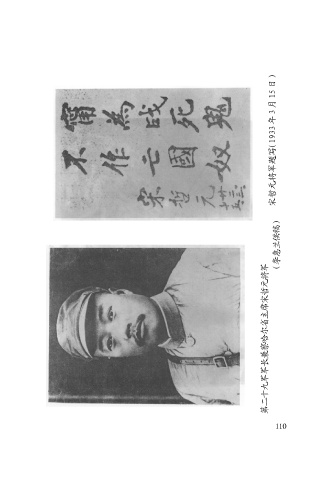 甯為战死鬼
不作亡國奴
宋哲元
宋哲元将军题写(1933年3月15日)
第二十九军军长兼察哈尔省主席宋哲元将军
(李惠兰供稿)
110